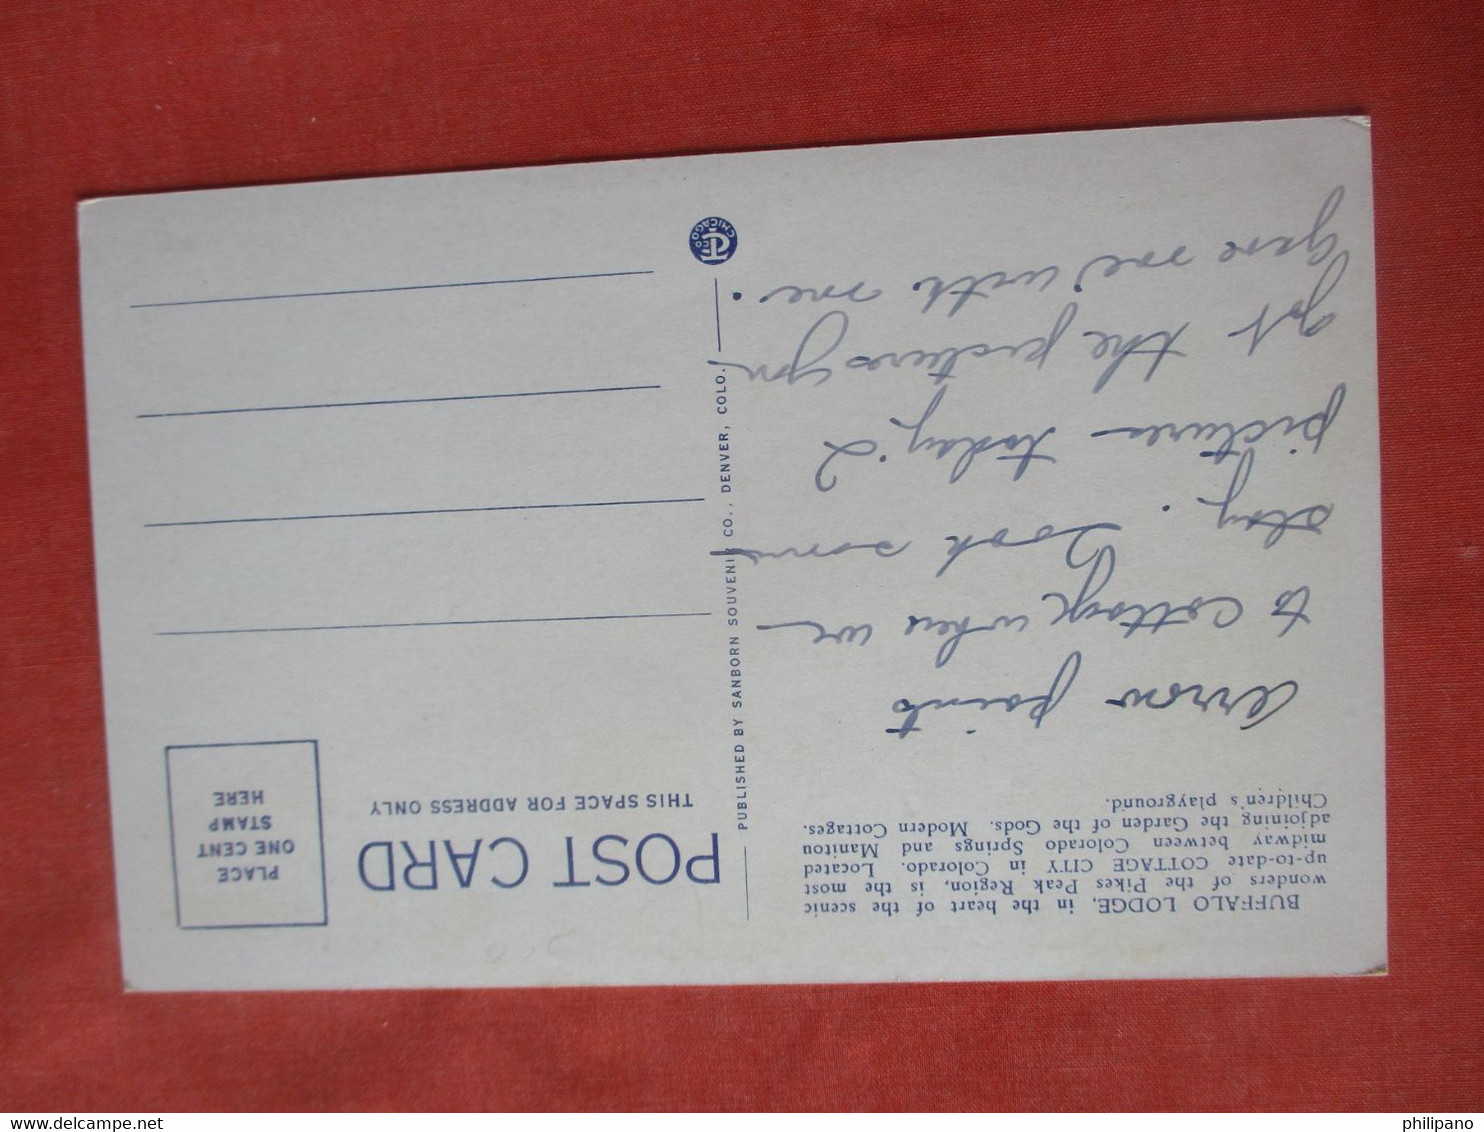 BUFFALO LODGE, in the heart of the scenic
wonders of the Pikes Peak Region, is the most
up-to-date COTTAGE CITY in Colorado. Located
midway between Colorado Springs and Manitou
adjoining the Garden of the Gods. Modern Cottages.
Children's playground.
Arrow points
to cottage where we
stay. Took some
pictures today. I
got the pictures you
gave me with me.
PUBLISHED BY SANBORN SOUVENIR CO., DENVER, COLO.
CT CO.
CHICAGO
POST CARD
THIS SPACE FOR ADDRESS ONLY
PLACE
ONE CENT
STAMP
HERE
www.delcampe.net
philipano